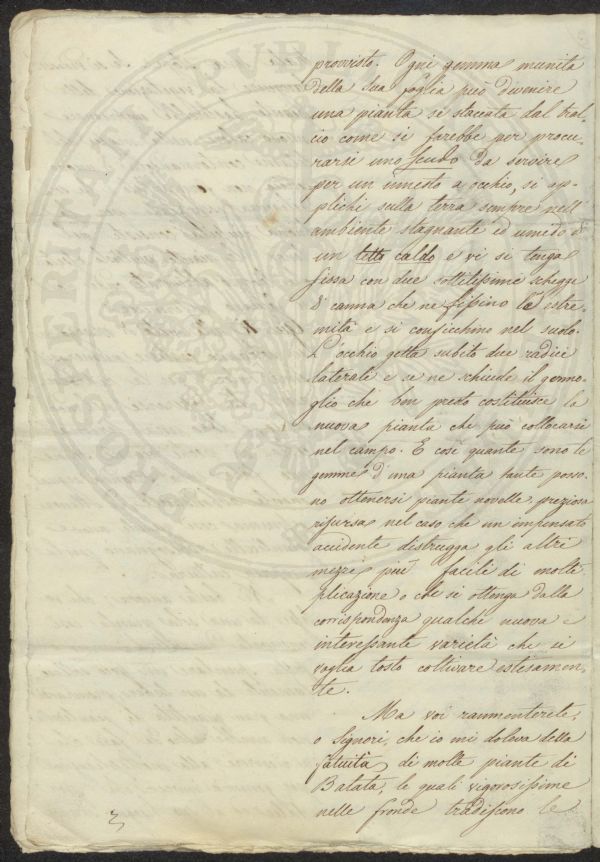 provvisto. Ogni gemma munita
della sua foglia può divenire
una pianta se staccata dal tral-
cio come si farebbe per procu-
rarsi uno scudo da servire
per un innesto a occhio, si ap-
plichi sulla terra sempre nell'
ambiente stagnante ed umido d'
un letto caldo e vi si tenga
fissa con due sottilissime schegge
d'canna che ne fissino le estre-
mità e si conficchino nel suolo.
L'occhio getta subito due radici
laterali e se ne schiude il germo-
glio che ben presto costituisce la
nuova pianta che può collocarsi
nel campo. E così quante sono le
gemme d'una pianta tante posso-
no ottenersi piante novelle, preziosa
risorsa nel caso che un impensato
accidente distrugga gli altri
mezzi più facili di molti-
plicazione o che si ottenga dalla
corrispondenza qualche nuova e
interessante varietà che si
voglia tosto coltivare estesamen-
te.
Ma voi rammenterete,
o Signori, che io mi doleva della
fatuità di molte piante di
Batata, le quali vigorosissime
nelle fronde tradiscono le
PROSPERITATI PUBLI